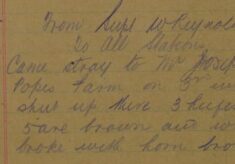 From Supt W Reynol
To All Stations
Came stray to Mr Josep
Popes Farm on 3rd
shut up there 3 heife
5 are brown and w
broke with horn bro